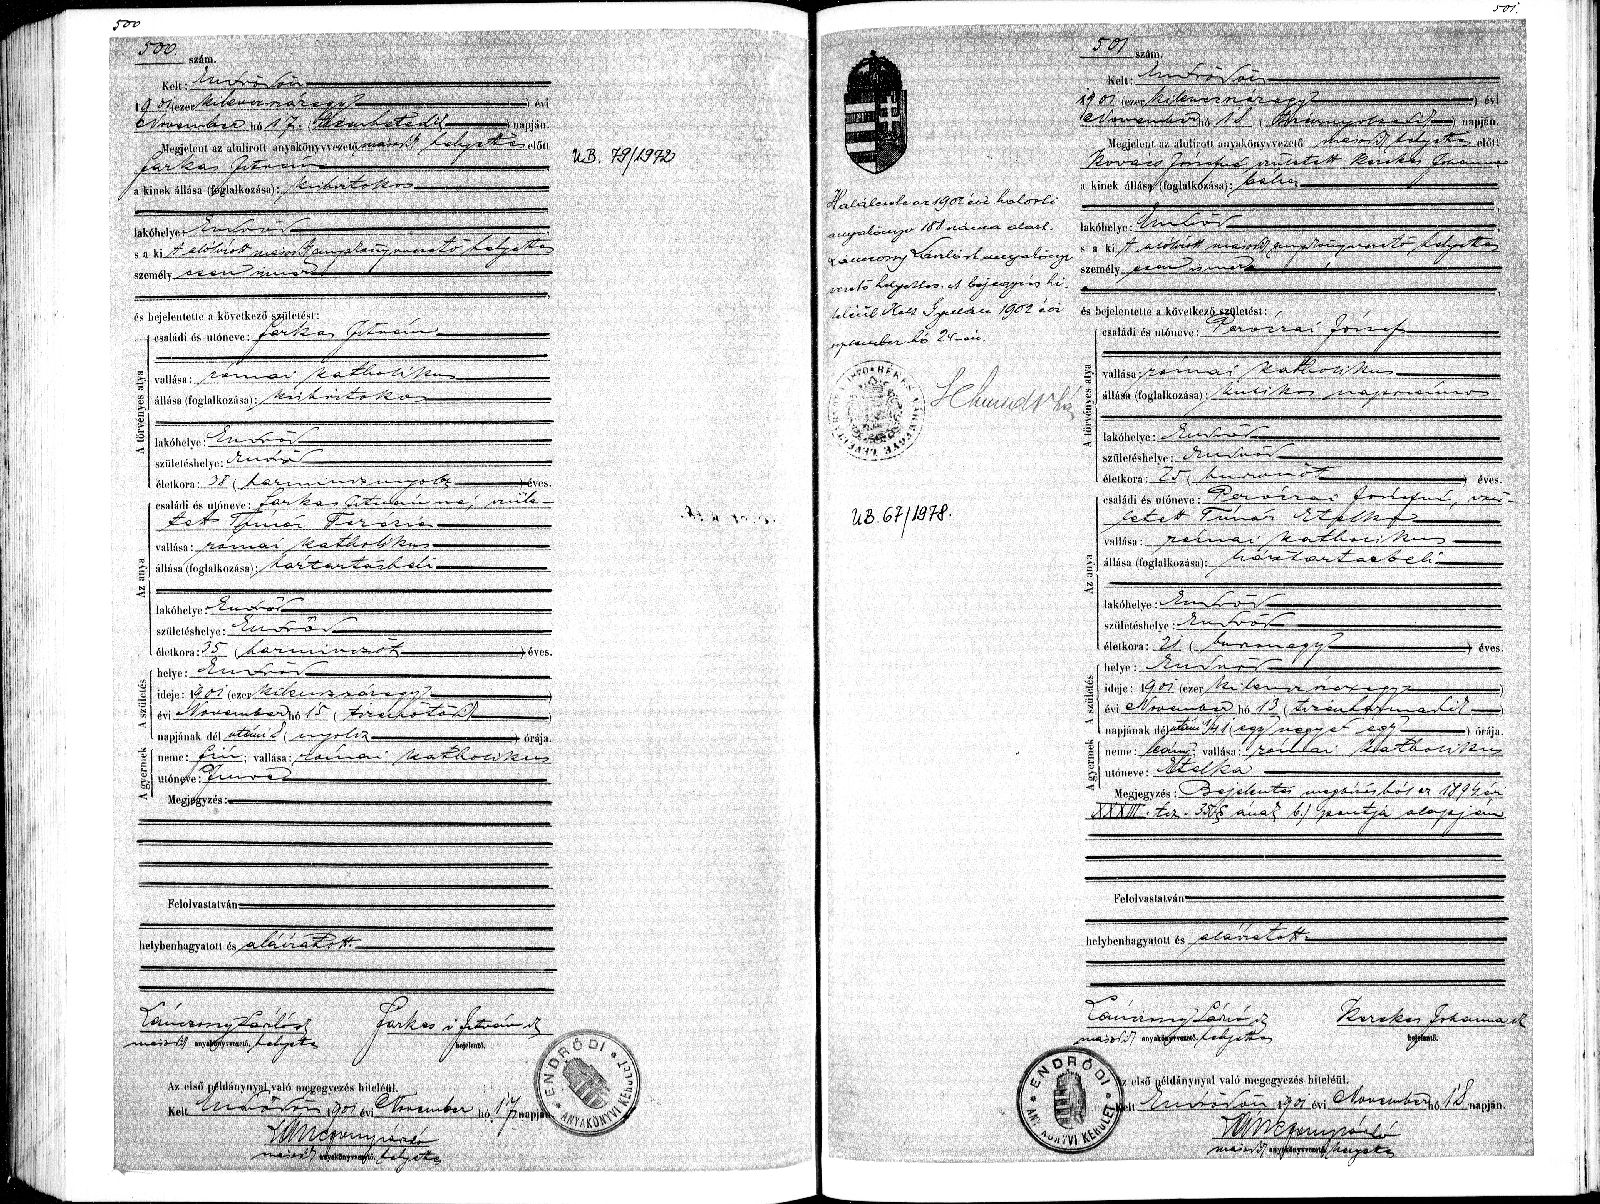 500
500 szám.
Kelt: Endrődön
1901 (ezer kilenczszázegy) évi
November hó 17. ( ) napján.
Megjelent az alulirott anyakönyvvezető másod helyettes előtt
Farkas István
a kinek állása (foglalkozása): kisbirtokos
lakóhelye: Endrőd
s a ki t alólirott másod anyakönyvvezető helyettes
személy esen ismer
és bejelentette a következő születést:
A törvényes atya
családi és utóneve: Farkas István
vallása: római katholikus
állása (foglalkozása): kisbirtokos
lakóhelye: Endrőd
születéshelye: Endrőd
életkora: 38 (harmincznyolcz) éves.
Az anya
családi és utóneve: Farkas Istvánné, szüle-
tett Timár Terézia
vallása: római katholikus
állása (foglalkozása): háztartásbeli
lakóhelye: Endrőd
születéshelye: Endrőd
életkora: 35 (harminczöt) éves.
A születés
helye: Endrőd
ideje: 1901 (ezer kilenczszázegy)
évi November hó 15 (tizenötöd)
napjának dél utáni 8 (nyolcz) órája.
A gyermek
neme: fiú; vallása: római katholikus
utóneve: Imre
Megjegyzés:
Felolvastatván
helybenhagyatott és aláiratott.
Lánczony László Farkas István
másod anyakönyvvezető helyettes bejelentő.
Az első példánynyal való megegyezés hiteléül.
Kelt Endrődön 1901 évi November hó 17 napján
másod anyakönyvvezető helyettes
ENDRŐDI ANYAKÖNYVI KERÜLET
UB. 79/1972
501.
501 szám.
Kelt: Endrődön
1901 (ezer kilenczszázegy) évi
November hó 18 ( ) napján.
Megjelent az alulirott anyakönyvvezető másod helyettes előtt
Kovács Józsefné, született Kerekes Johanna
a kinek állása (foglalkozása): bába
lakóhelye: Endrőd
s a ki t alólirott másod anyakönyvvezető helyettes
személy esen ismer
és bejelentette a következő születést:
A törvényes atya
családi és utóneve: József
vallása: római katholikus
állása (foglalkozása): kubikos napszámos
lakóhelye: Endrőd
születéshelye: Endrőd
életkora: 25 (huszonöt) éves.
Az anya
családi és utóneve: Józsefné, szü-
letett Timár Etelka
vallása: római katholikus
állása (foglalkozása): háztartásbeli
lakóhelye: Endrőd
születéshelye: Endrőd
életkora: 21 (huszonegy) éves
A születés
helye: Endrőd
ideje: 1901 (ezer kilenczszázegy)
évi November hó 13 (tizenharmadik)
napjának dél utáni 1/4 1 (egy negyed egy) órája.
A gyermek
neme: leány; vallása: római katholikus
utóneve: Etelka
Megjegyzés: Bejelentés megbízásból az 1894 évi
XXXIII. tcz. 35 § ának b.) pontja alapján
Felolvastatván
helybenhagyatott és aláiratott.
Lánczony László Kerekes Johanna
másod anyakönyvvezető helyettes bejelentő.
Az első példánynyal való megegyezés hiteléül.
Kelt Endrődön 1901 évi November hó 18 napján.
másod anyakönyvvezető helyettes
ENDRŐDI ANYAKÖNYVI KERÜLET
Halálesete az 1902 évi halotti
anyakönyv 181 száma alatt.
Lánczony László anyakönyv
vezető helyettes. A bejegyzés hi-
teléül Kelt Gyulán 1902 évi
szeptember hó 24-én.
UB. 67/1978.